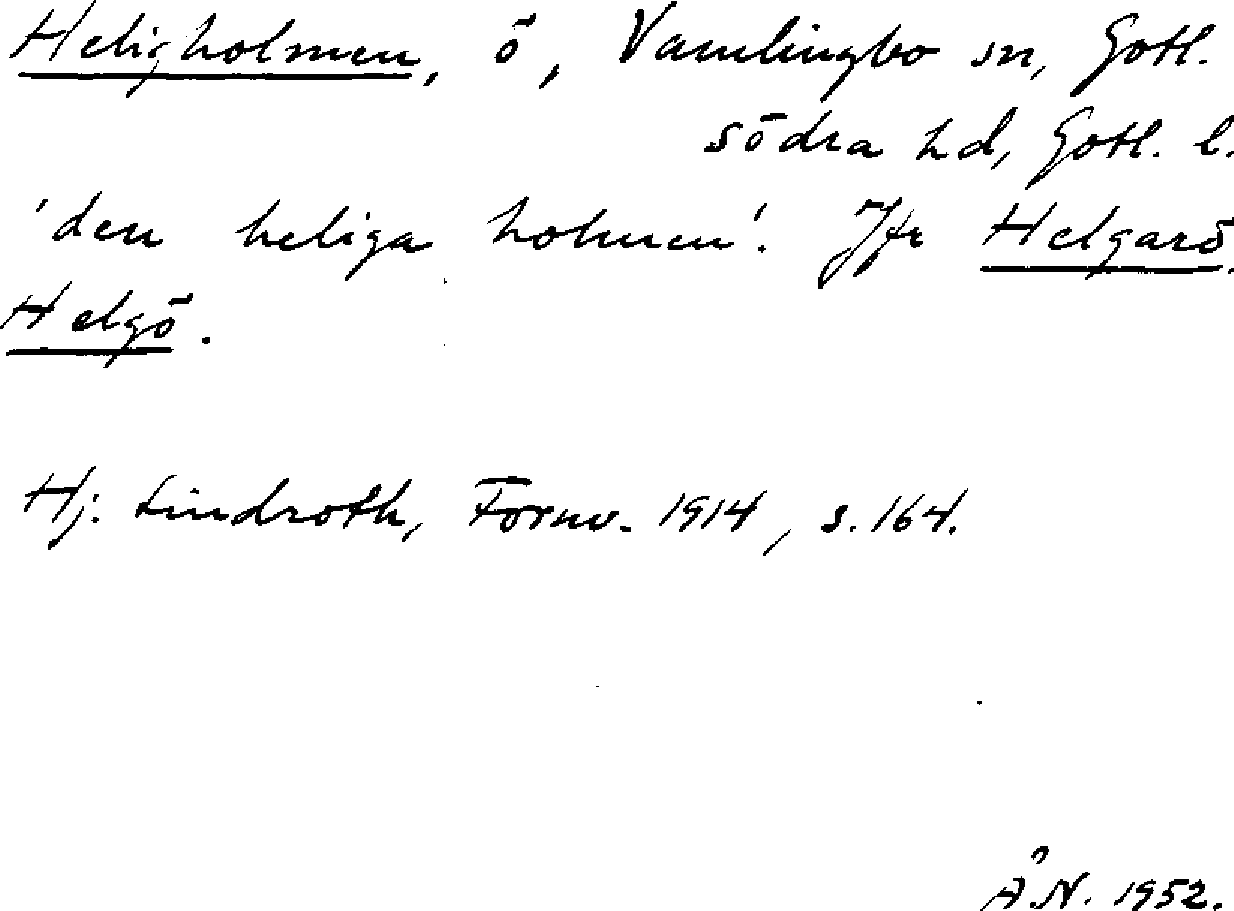 Heligholmen, ö, Vamlingbo sn, Gotl.
södra hd, Gotl. l.
'den heliga holmen'. Jfr Helgarö,
Helgö.
Hj. Lindroth, Fornv. 1914, s. 164.
Å N. 1952.